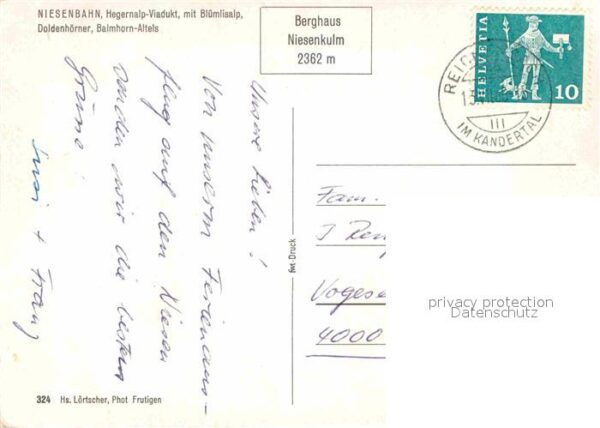 NIESENBAHN, Hegernalp-Viadukt, mit Blümlisalp,
Doldenhörner, Balmhorn-Altels
Berghaus
Niesenkulm
2362 m
HELVETIA
10
REIC
III
IM KANDERTAL
Unsere Lieben!
Von unserm Ferienaus-
flug auf den Niesen
senden wir die besten
Grüsse!
Susi + Franz
fot-Druck
Fam.
J
Vogese
4000
privacy protection
Datenschutz
324 Hs. Lörtscher, Phot Frutigen